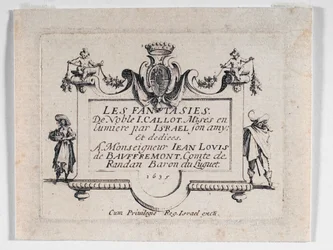 LES FANTASIES.
De Noble I. CALLOT. Mises en
lumiere par ISRAEL son amy.
Et dediees.
A Monseigneur IEAN LOVIS
de BAVFFREMONT. Comte de
Randan Baron du Luguet.
1635
Cum Privilegio Reg. Israel excu.